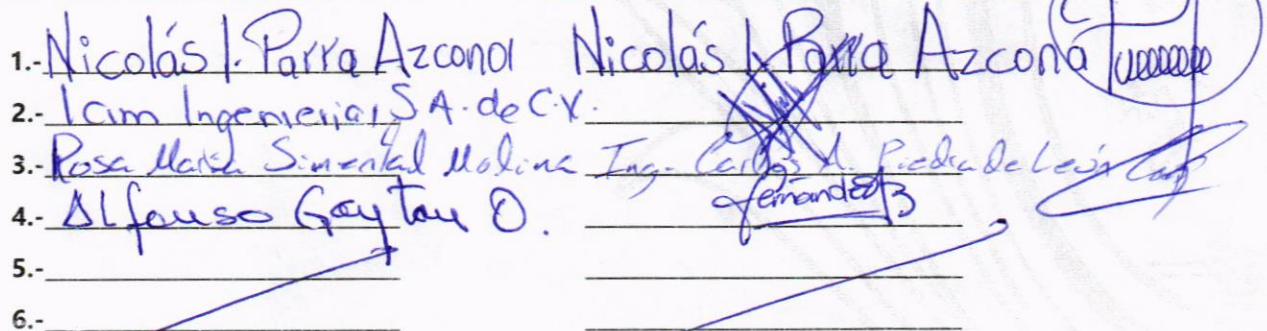 1.- Nicolás I. Parra Azcona Nicolás I. Parra Azcona
2.- Icim Ingenieria, S.A. de C.V.
3.- Rosa Maria Simental Molina Ing. Carlos A. Piedra de León
4.- Alfonso Gaytan O. Fernandez
5.-
6.-